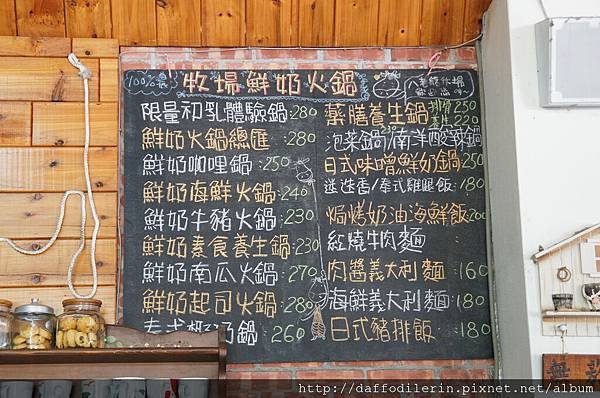 100%
牧場鮮奶火鍋
限量初乳體驗鍋:280
鮮奶火鍋總匯:280
鮮奶咖哩鍋:250
鮮奶海鮮火鍋:240
鮮奶牛豬火鍋:230
鮮奶素食養生鍋:230
鮮奶南瓜火鍋:270
鮮奶起司火鍋:280
奶鍋:260
藥膳養生鍋 250
220
泡菜鍋/南洋酸辣鍋
日式味噌鮮奶鍋 250
迷迭香/泰式雞腿飯:180
焗烤奶油海鮮飯 200
紅燒牛肉麵
肉醬義大利麵:160
海鮮義大利麵:180
日式豬排飯:180
http://daffodilerin.pixnet.net/album